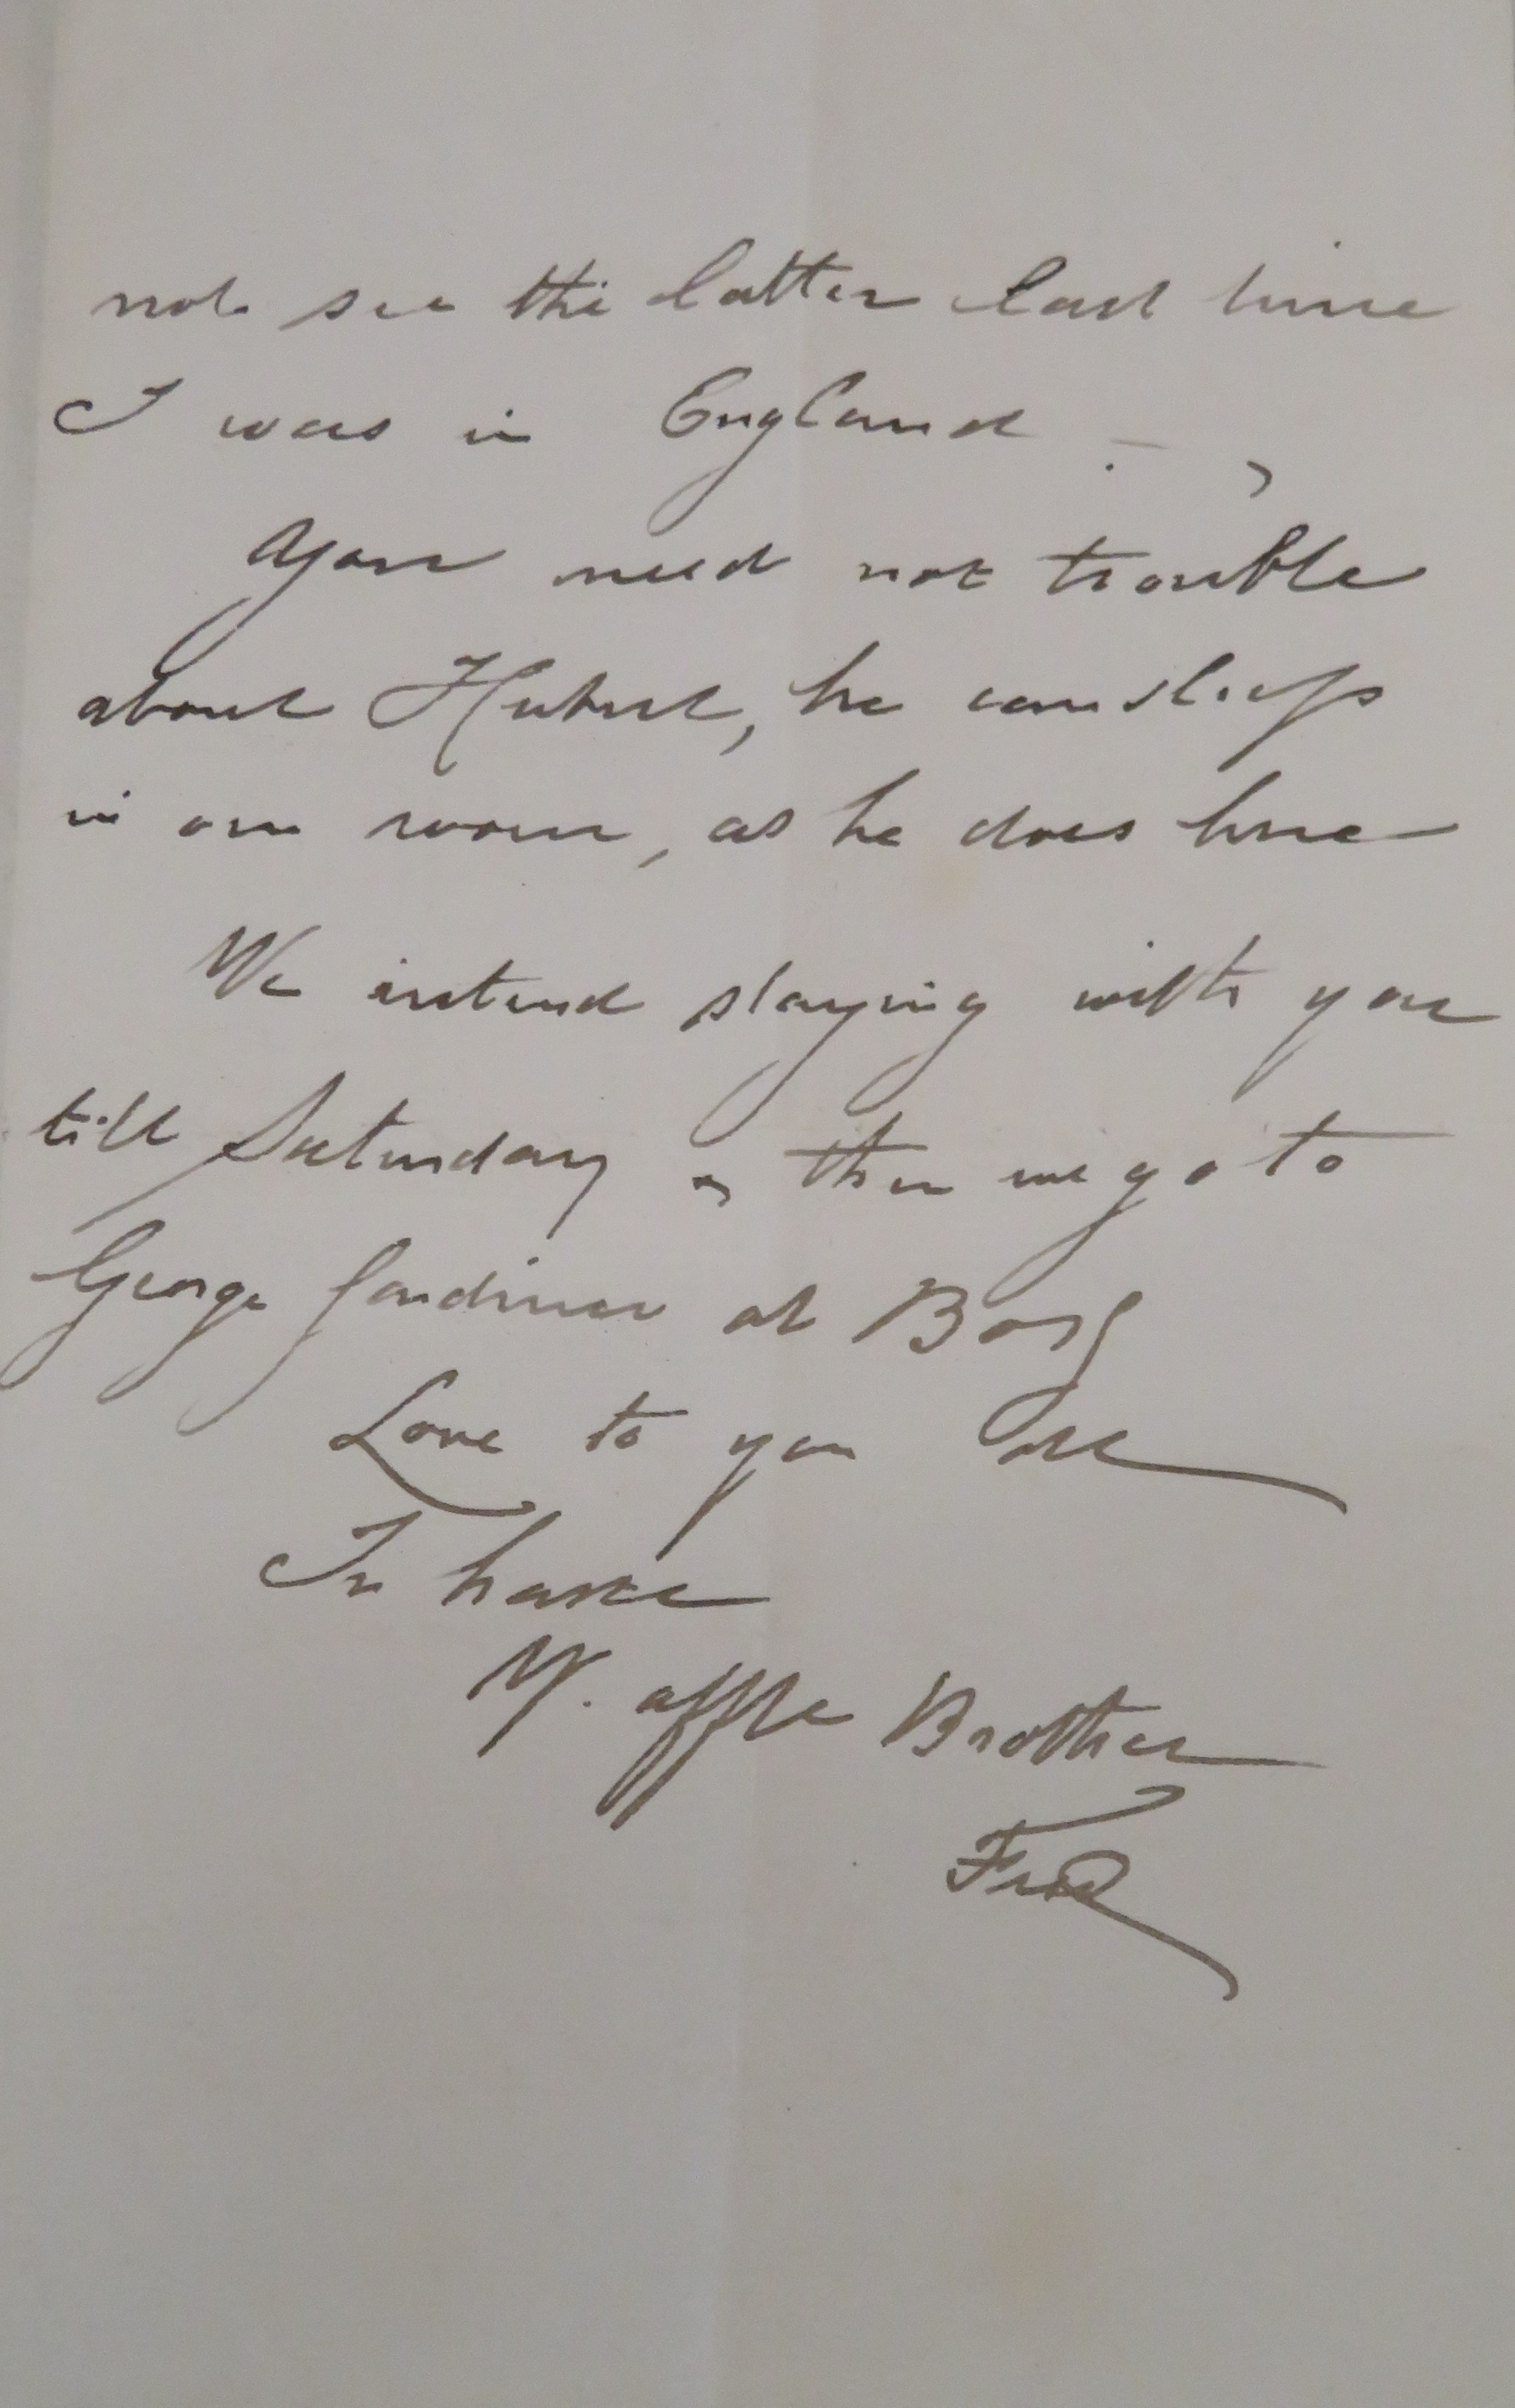 not see the latter last time
I was in England -
You need not trouble
about Hubert, he can sleep
in our room, as he does here
We intend staying with you
till Saturday & then we go to
George Gardiner at
Love to you all
In haste
Y. affte Brother
Fred